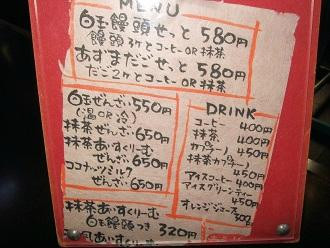 MENU
白玉饅頭せっと 580円
饅頭3ケとコーヒーOR抹茶
あずまだごせっと 580円
だご2ケとコーヒーOR抹茶
白玉ぜんざい 550円
(温OR冷)
抹茶ぜんざい 650円
抹茶あいすくりーむ
ぜんざい 650円
ココナッツミルク
ぜんざい 650円
抹茶あいすくりーむ
白玉饅頭つき 320円
DRINK
コーヒー 400円
抹茶 400円
カプチーノ 450円
抹茶カプチーノ 450円
アイスコーヒー 400円
アイスグリーンティー 450円
オレンジジュース 300円